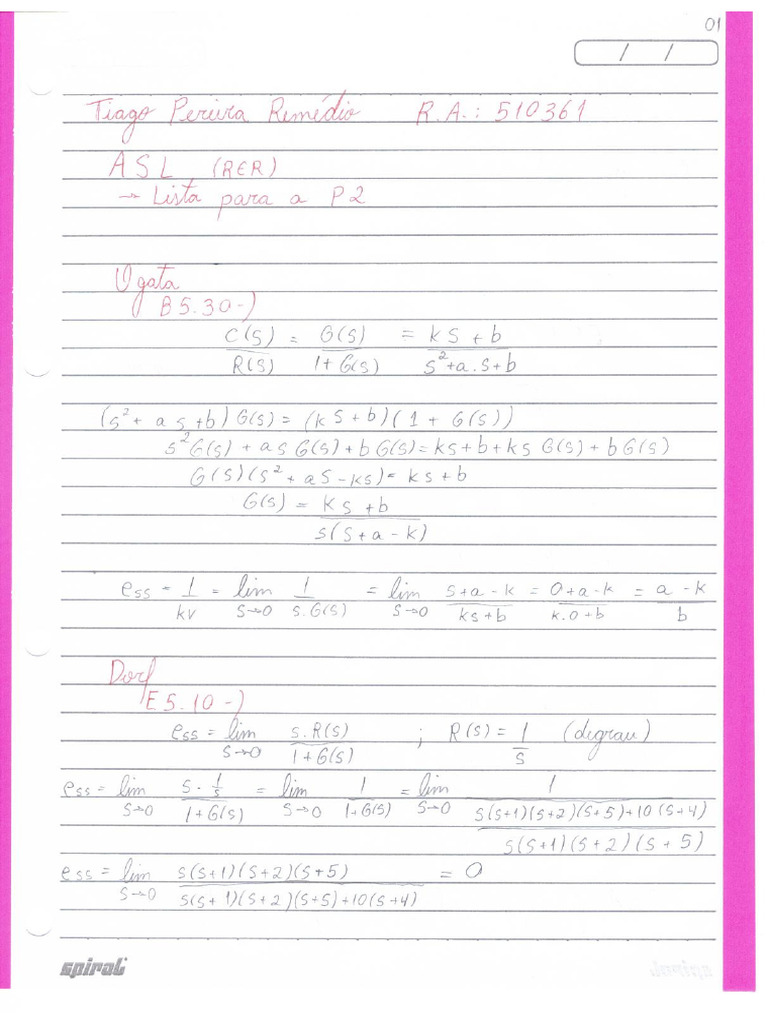 01
/ /
Tiago Pereira Remédio R.A.: 510361
ASL (RER)
→ Lista para a P2
Ogata
B 5.30-)
C(s)/R(s) = G(s)/(1+G(s)) = (ks+b)/(s²+a.s+b)
(s²+as+b)G(s) = (ks+b)(1+G(s))
s²G(s)+asG(s)+bG(s)=ks+b+ksG(s)+bG(s)
G(s)(s²+as-ks)=ks+b
G(s) = (ks+b)/(s(s+a-k))
ess = 1/kv = lim s→0 1/(s.G(s)) = lim s→0 (s+a-k)/(ks+b) = (0+a-k)/(k.0+b) = (a-k)/b
Dorf
E5.10-)
ess = lim s→0 s.R(s)/(1+G(s)) ; R(s) = 1/s (degrau)
ess = lim s→0 (s·1/s)/(1+G(s)) = lim s→0 1/(1+G(s)) = lim s→0 1/((s(s+1)(s+2)(s+5)+10(s+4))/(s(s+1)(s+2)(s+5)))
ess = lim s→0 s(s+1)(s+2)(s+5)/(s(s+1)(s+2)(s+5)+10(s+4)) = 0
spiral